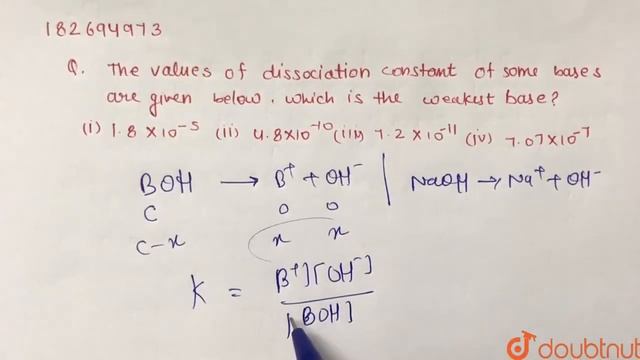 182694973
Q. The values of dissociation constant of some bases
are given below. which is the weakest base?
(i) 1.8 × 10⁻⁵ (ii) 4.8×10⁻¹⁰ (iii) 7.2 × 10⁻¹¹ (iv) 7.07×10⁻⁷
BOH → B⁺ + OH⁻ | NaOH → Na⁺ + OH⁻
C 0 0
C-x x x
K = B⁺][OH⁻]
[BOH]
doubtnut